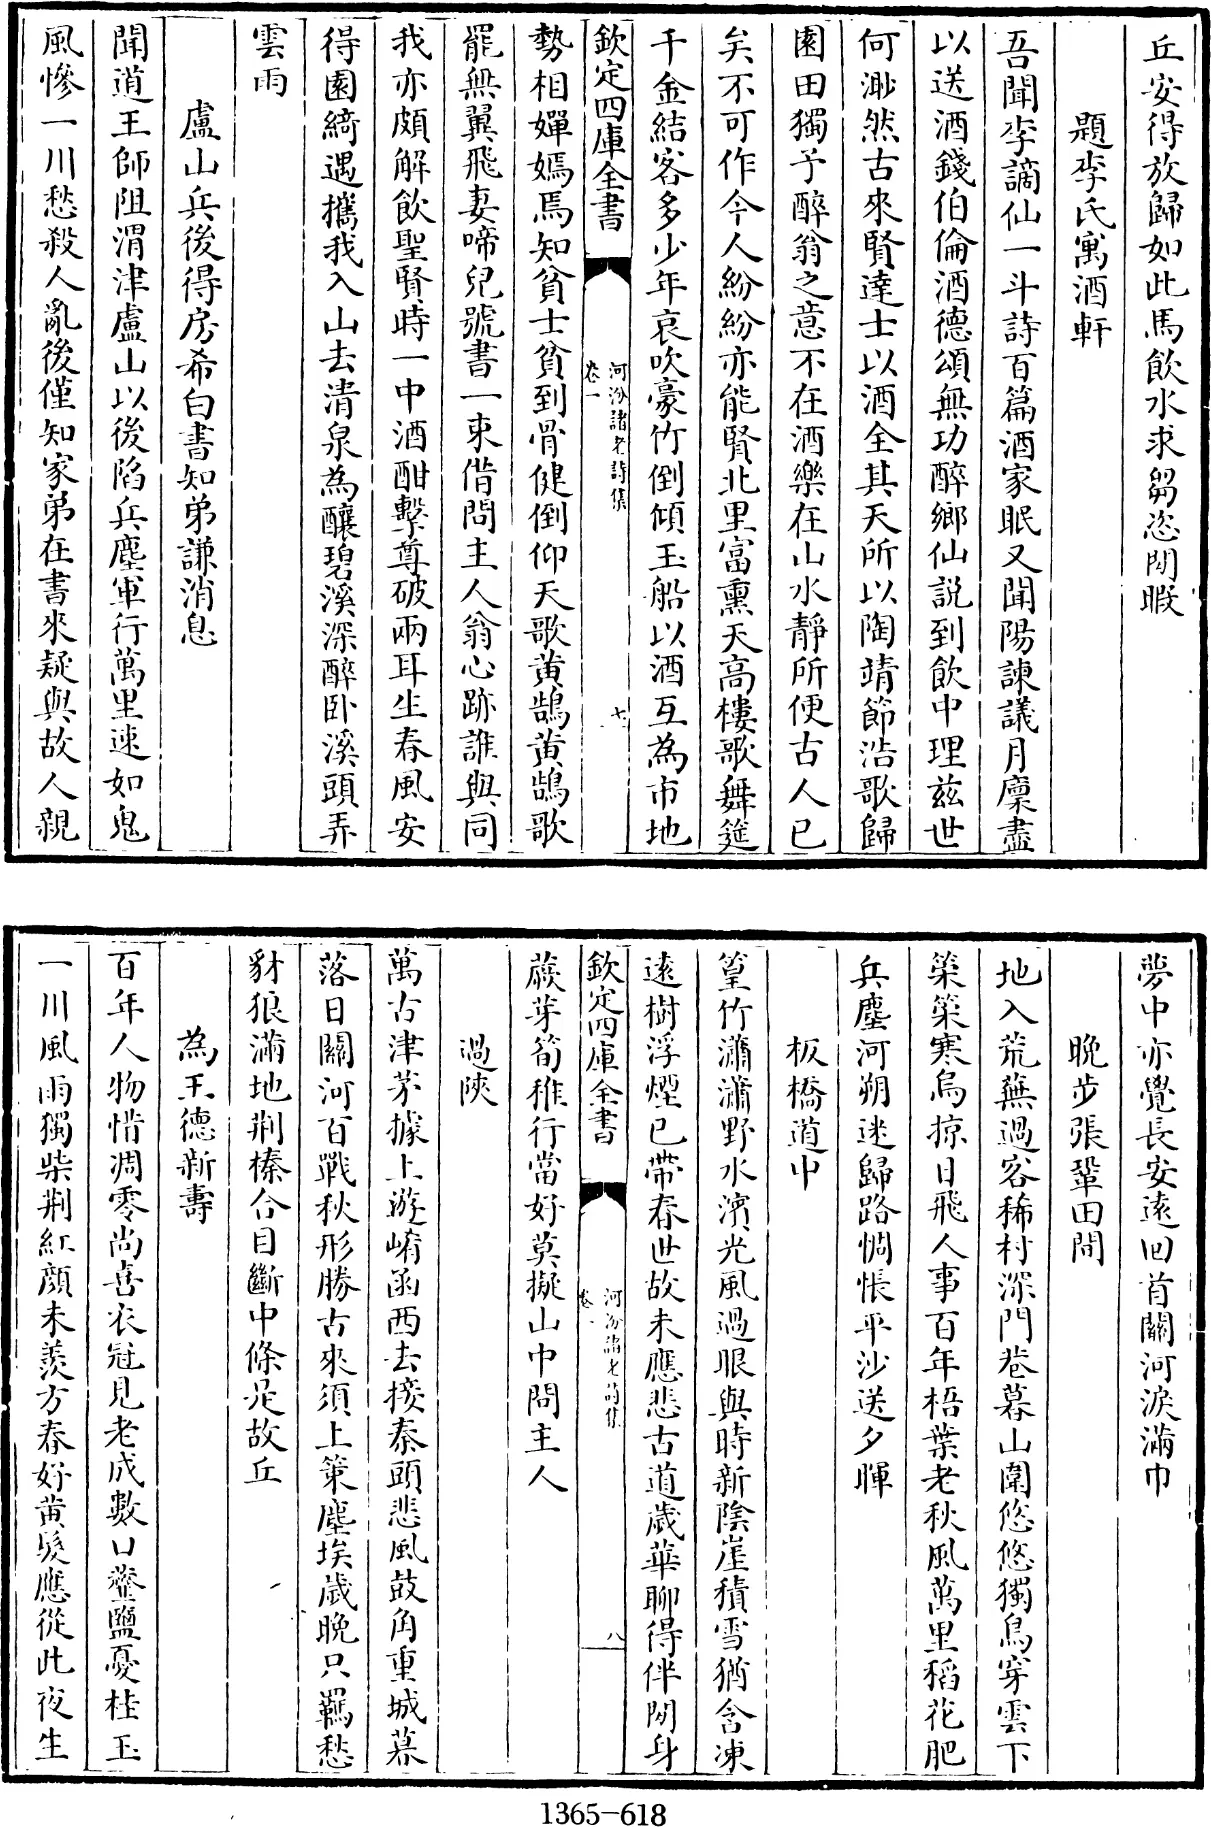 丘安得放歸如此馬飲水求芻恣閒暇
題李氏寓酒軒
吾聞李謫仙一斗詩百篇酒家眠又聞陽諫議月廩盡
以送酒錢伯倫酒德頌無功醉鄉仙説到飲中理兹世
何渺然古來賢達士以酒全其天所以陶靖節浩歌歸
園田獨予醉翁之意不在酒樂在山水靜所便古人已
矣不可作今人紛紛亦能賢北里富熏天高樓歌舞筵
千金結客多少年哀吹豪竹倒傾玉船以酒互為市地
欽定四庫全書
河汾諸老詩集
卷一
七
勢相嬋嫣焉知貧士貧到骨健倒仰天歌黄鵠黄鵠歌
罷無翼飛妻啼兒號書一束偕問主人翁心跡誰與同
我亦頗解飲聖賢時一中酒酣擊尊破兩耳生春風安
得園綺遇攜我入山去清泉為釀碧溪深醉卧溪頭弄
雲雨
盧山兵後得房希白書知弟謙消息
聞道王師阻渭津盧山以後陷兵塵軍行萬里速如鬼
風慘一川愁殺人亂後僅知家弟在書來疑與故人親
夢中亦覺長安遠回首關河淚滿巾
晚步張鞏田間
地入荒蕪過客稀村深門巷暮山圍悠悠獨鳥穿雲下
䉽䉽寒烏掠日飛人事百年梧葉老秋風萬里稻花肥
兵塵河朔迷歸路惆悵平沙送夕暉
板橋道中
篁竹瀟瀟野水濱光風過眼與時新陰崖積雪猶含凍
遠樹浮煙已帶春世故未應悲古道歲華聊得伴閒身
欽定四庫全書
河汾諸老詩集
卷一
八
蕨芽筍稚行當好莫擬山中問主人
過陜
萬古津茅據上游崤函西去接秦頭悲風鼓角重城暮
落日關河百戰秋形勝古來須上策塵埃歲晚只羈愁
豺狼滿地荆榛合目斷中條是故丘
為王德新壽
百年人物惜凋零尚喜衣冠見老成數口虀鹽憂桂玉
一川風雨獨柴荆紅顔未羨方春好黄髮應從此夜生
1365-618